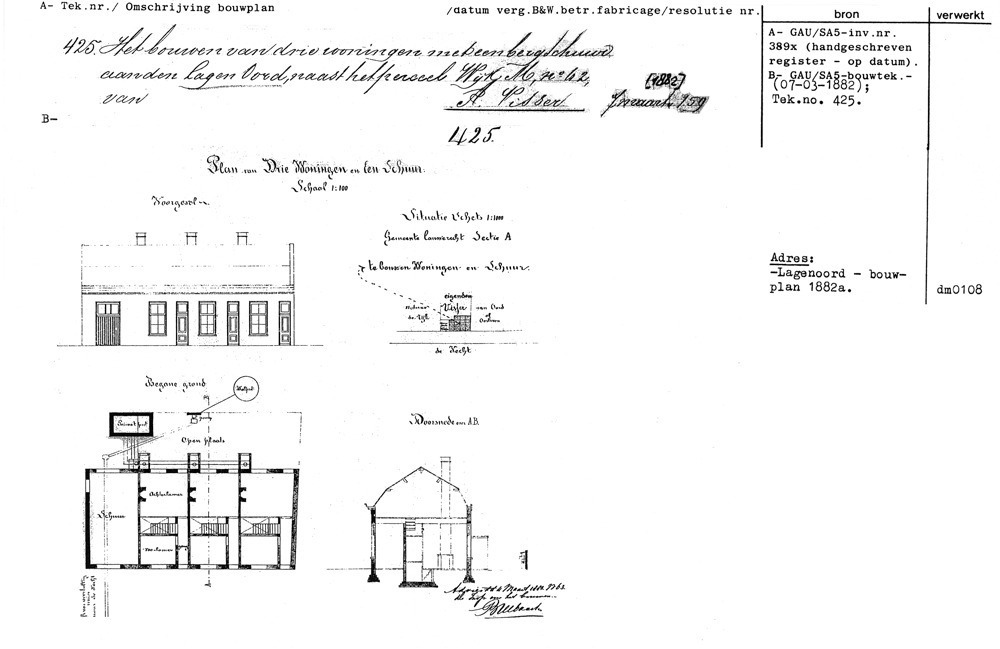 A- Tek.nr./ Omschrijving bouwplan
/datum verg.B&W.betr.fabricage/resolutie nr.
bron
verwerkt
425. Het bouwen van drie woningen met een bergschuur
aan den Lagen Oord, naast het perceel Wijk M, no 62,
van A. Visser 7 maart 159
[1882]
A- GAU/SA5-inv.nr.
389x (handgeschreven
register - op datum).
B- GAU/SA5-bouwtek.-
(07-03-1882);
Tek.no. 425.
B-
425.
Plan van Drie Woningen en Een Schuur.
Schaal 1:100
Voorgevel
Situatie Schets 1:1000
Gemeente Lauwerecht Sectie A
te bouwen Woningen en Schuur.
eigendom
Visser
van Oord
de Vecht
Adres:
-Lagenoord - bouw-
plan 1882a.
dm0108
Begane grond
Welput
Open plaats
Achterkamer
Schuur
Voorkamer
Doorsnede over A.B.
A